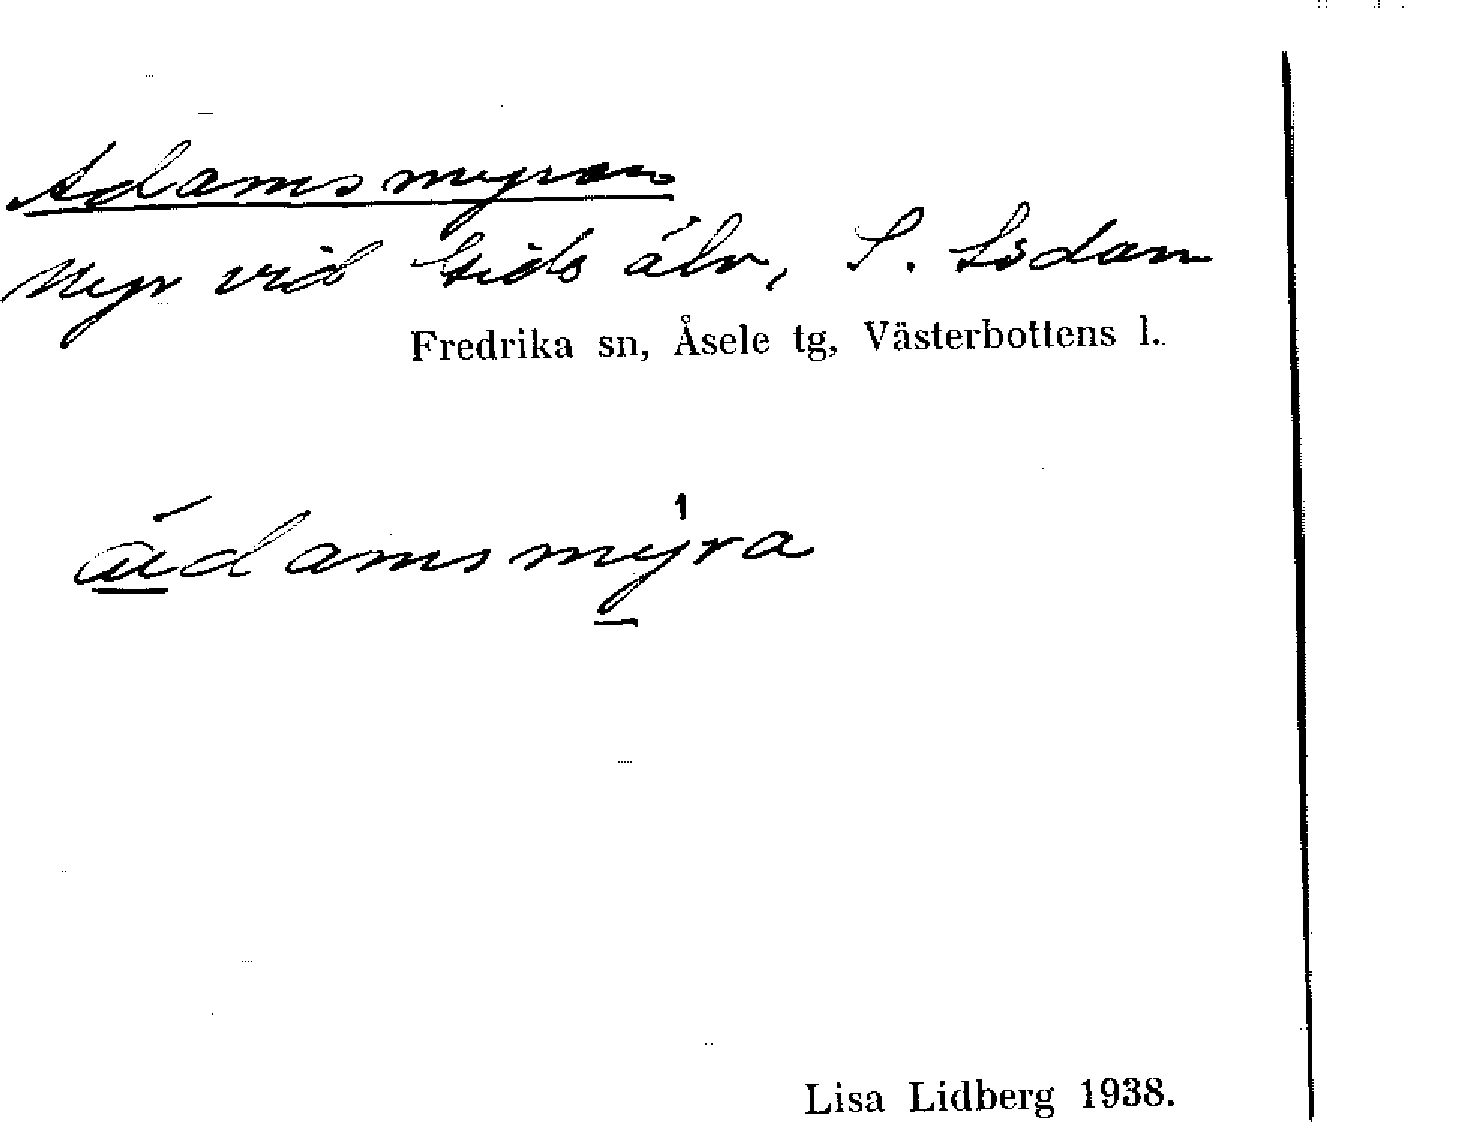 Adamsmyran
Myr vid Gide älv, S. Lsdam
Fredrika sn, Åsele tg, Västerbottens l.
ádamsmýra
Lisa Lidberg 1938.